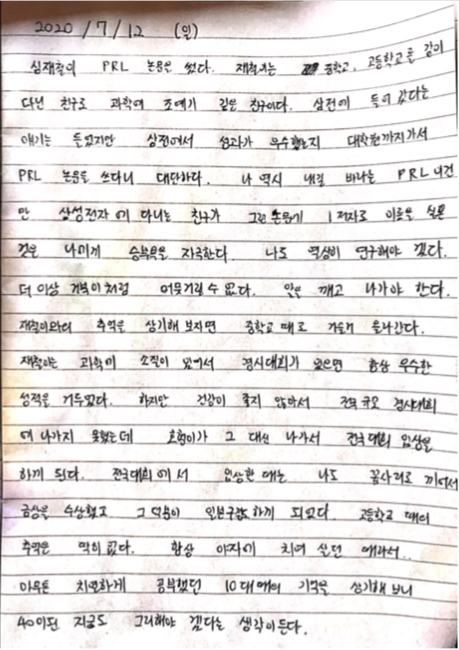 2020/7/12 (일)
심재철이 PRL 논문을 썼다. 재철이는 중학교, 고등학교를 같이
다닌 친구로 과학에 조예가 깊은 친구이다. 삼전에 들어갔다는
얘기는 들었지만 삼전에서 성과가 우수했는지 대학원까지가서
PRL 논문을 쓰다니 대단하다. 나 역시 내길 바라는 PRL 이건
만 삼성전자에 다니는 친구가 그런 논문에 1저자로 이름을 실은
것은 나에게 승부욕을 자극한다. 나도 열심히 연구해야 겠다.
더 이상 거북이처럼 어물거릴 수 없다. 알을 깨고 나가야 한다.
재철이와의 추억을 상기해 보자면 중학교 때로 거슬러 올라간다.
재철이는 과학에 소질이 있어서 경시대회가 있으면 항상 우수한
성적을 거두었다. 하지만 건강이 좋지 않아서 전국 규모 경시대회
에 나가지 못했는데 호형이가 그 대신 나가서 전국대회 입상을
하게 된다. 전국대회에서 입상한 때는 나도 꼽사리로 끼어서
금상을 수상했고 그 덕분에 일본구경도 하게 되었다. 고등학교 때의
추억은 딱히 없다. 항상 야자에 치여 살던 때라서..
아무튼 치열하게 공부했던 10대 때의 기억을 상기해 보니
40이된 지금도 그리해야 겠다는 생각이 든다.